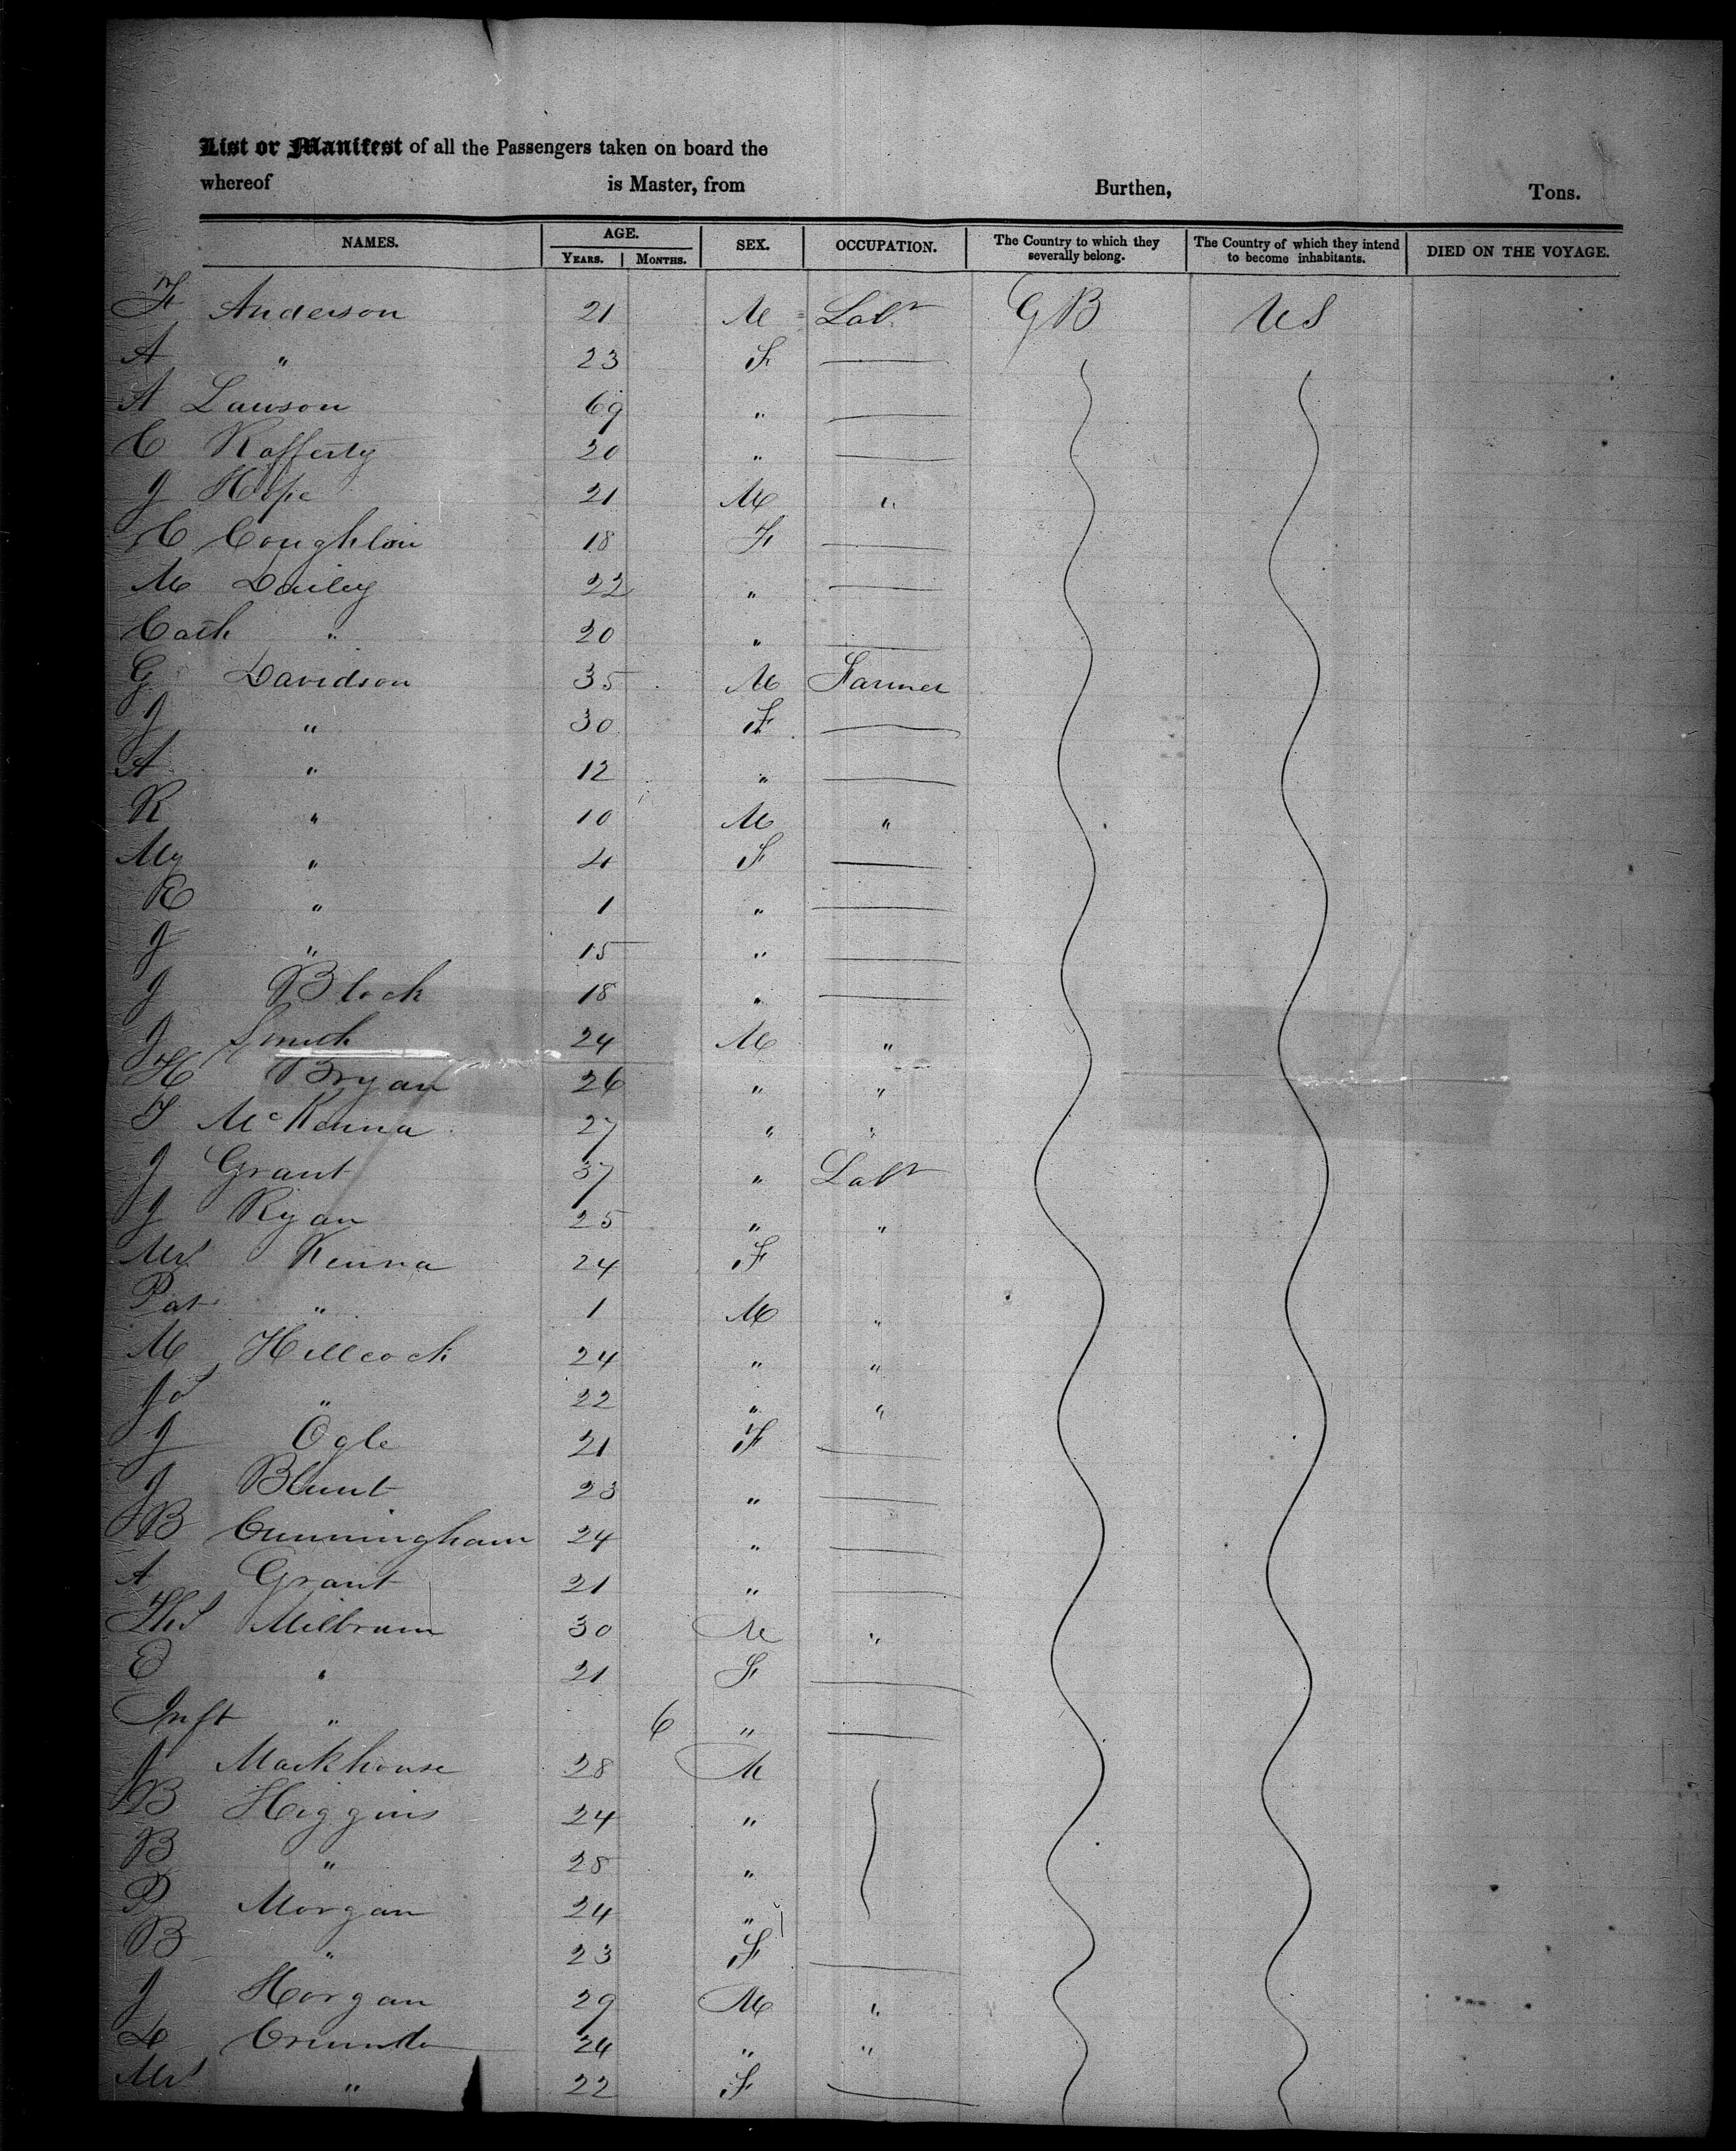 List or Manifest of all the Passengers taken on board the
whereof is Master, from Burthen, Tons.
NAMES. AGE. SEX. OCCUPATION. The Country to which they severally belong. The Country of which they intend to become inhabitants. DIED ON THE VOYAGE.
YEARS. MONTHS.
F Anderson 21 M Labr GB US
A " 23 F
A Lawson 69 "
C Rafferty 20 "
J Hope 21 M "
C Coughlin 18 F
M Dailey 22 "
Cath " 20 "
G Davidson 35 M Farmer
J " 30 F
A " 12 "
R " 10 M "
My " 4 F
E " 1 "
J " 15 "
J Block 18 "
J Smith 24 M "
H Bryan 26 " "
T McKenna 27 " "
J Grant 37 " Labr
J Ryan 25 " "
Mrs Kenna 24 F
Pat " 1 M "
M Hillcock 24 " "
Js " 22 " "
J Ogle 21 F
J Blunt 23 "
B Cunningham 24 "
A Grant 21 "
Ths Milbrum 30 M "
E " 21 F
Inft " 6 "
J Markhouse 28 M
B Higgins 24 "
B " 28 "
P Morgan 24 "
B " 23 F
J Horgan 29 M "
24 " "
Mrs " 22 F